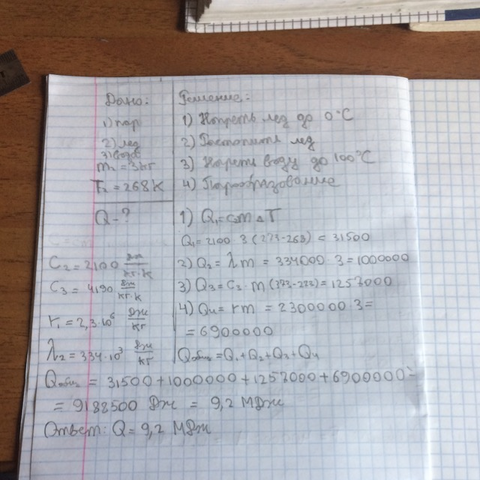 Дано:
1) пар
2) лед
3) вода
m = 3 кг
T₁ = 268 К
Q - ?
C₂ = 2100 Дж/кг·К
C₃ = 4190 Дж/кг·К
r₁ = 2,3·10⁶ Дж/кг
λ₂ = 334·10³ Дж/кг
Решение:
1) Нагреть лед до 0°C
2) Растопить лед
3) Нагреть воду до 100°C
4) Парообразование
1) Q₁ = cm△T
Q₁ = 2100 · 3 (273-268) = 31500
2) Q₂ = λm = 334000 · 3 = 1000000
3) Q₃ = C₂ · m · (373-273) = 1257000
4) Q₄ = rm = 2300000 · 3 =
= 6900000
Qобщ = Q₁ + Q₂ + Q₃ + Q₄
Qобщ = 31500 + 1000000 + 1257000 + 6900000 =
= 9188500 Дж = 9,2 МДж
Ответ: Q = 9,2 МДж